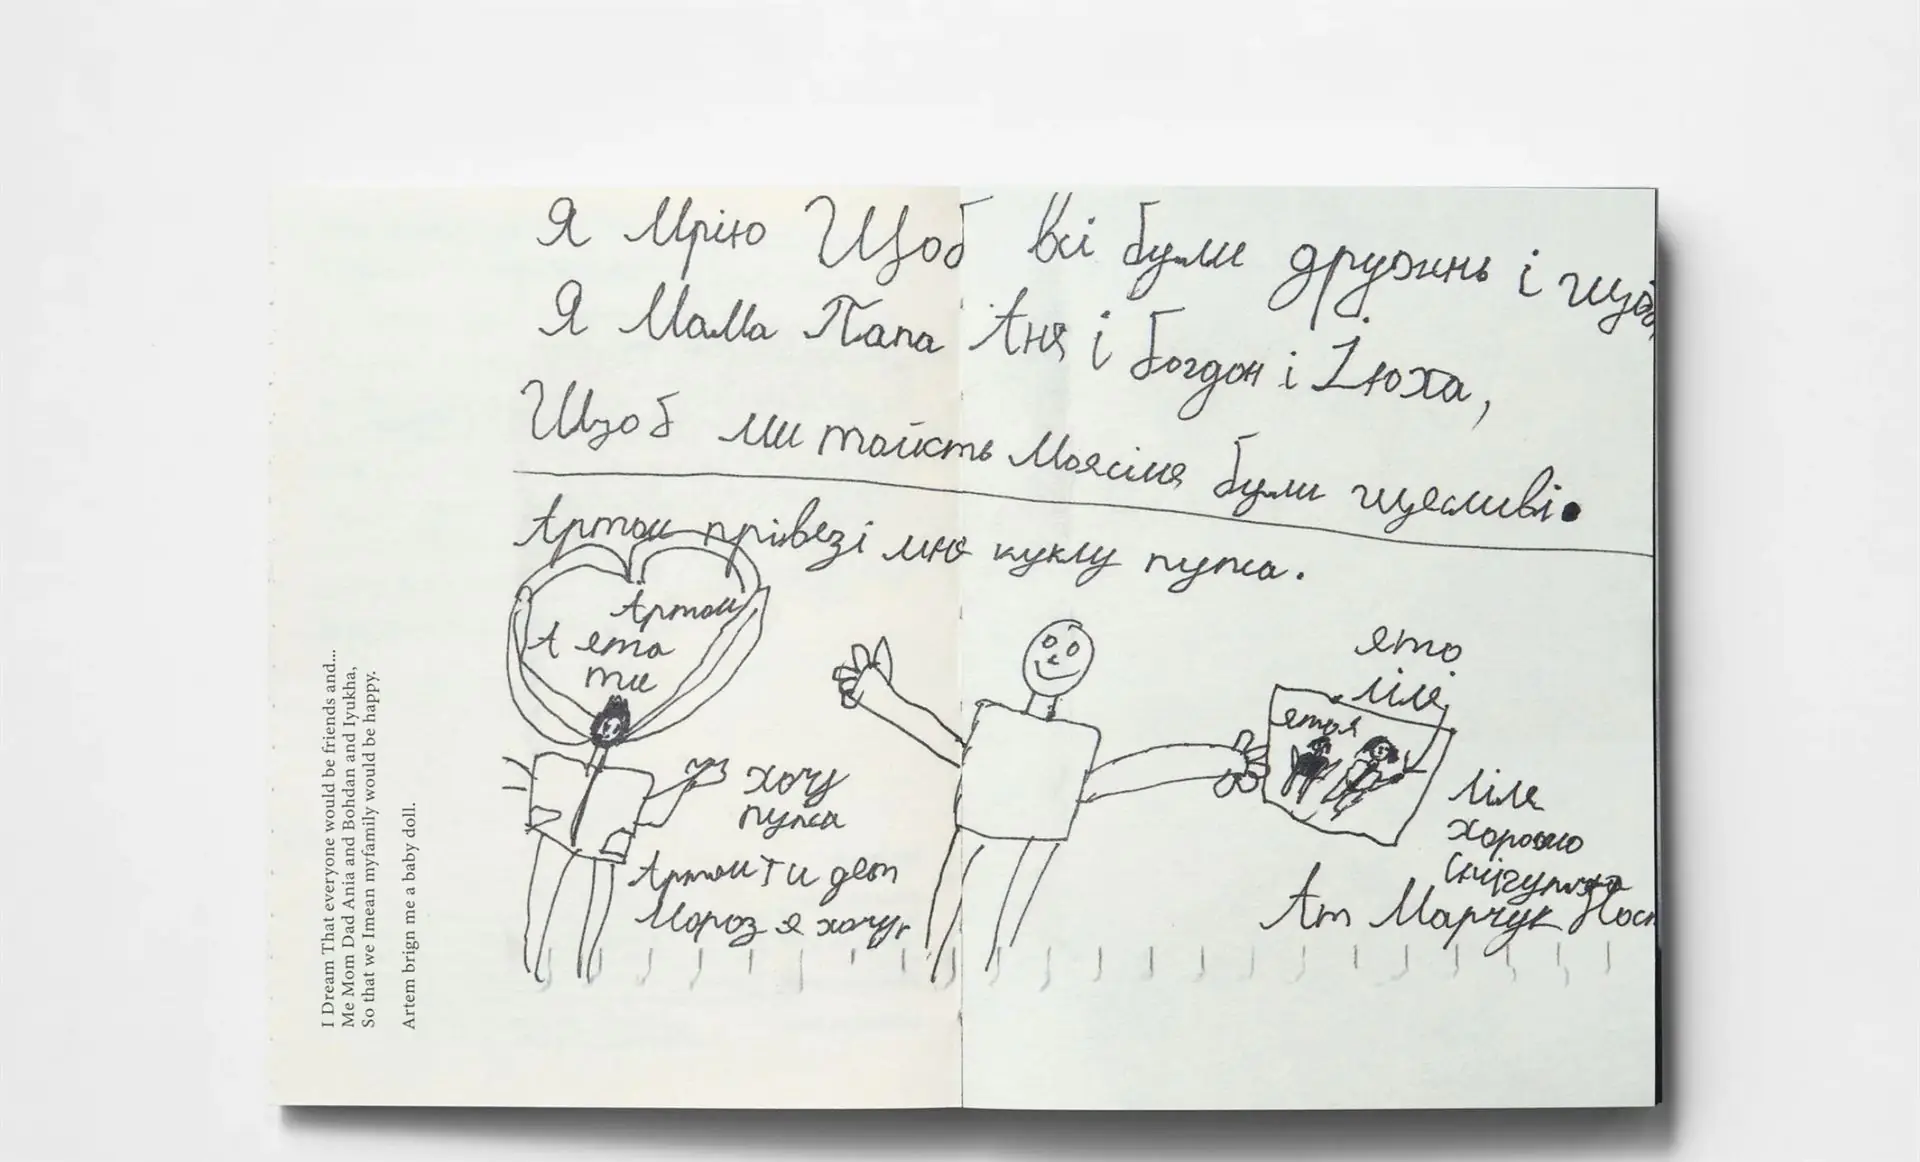 Я Мрію Щоб Всі були дружнь і щоб
Я Мама Папа Аня і Богдон і Іюха,
Щоб ми тоїсть Моясімя були щесливі.
Артом прівезі мне куклу пупса.
Артом
А ето
ти
хочу
пупса
Артом Ти дет
Мороз я хочу,
ето
ліля
етоя
Ліля
хорошо
Ат Марчук
I Dream That everyone would be friends and...
Me Mom Dad Ania and Bohdan and Iyukha,
So that we Imean myfamily would be happy.
Artem brign me a baby doll.